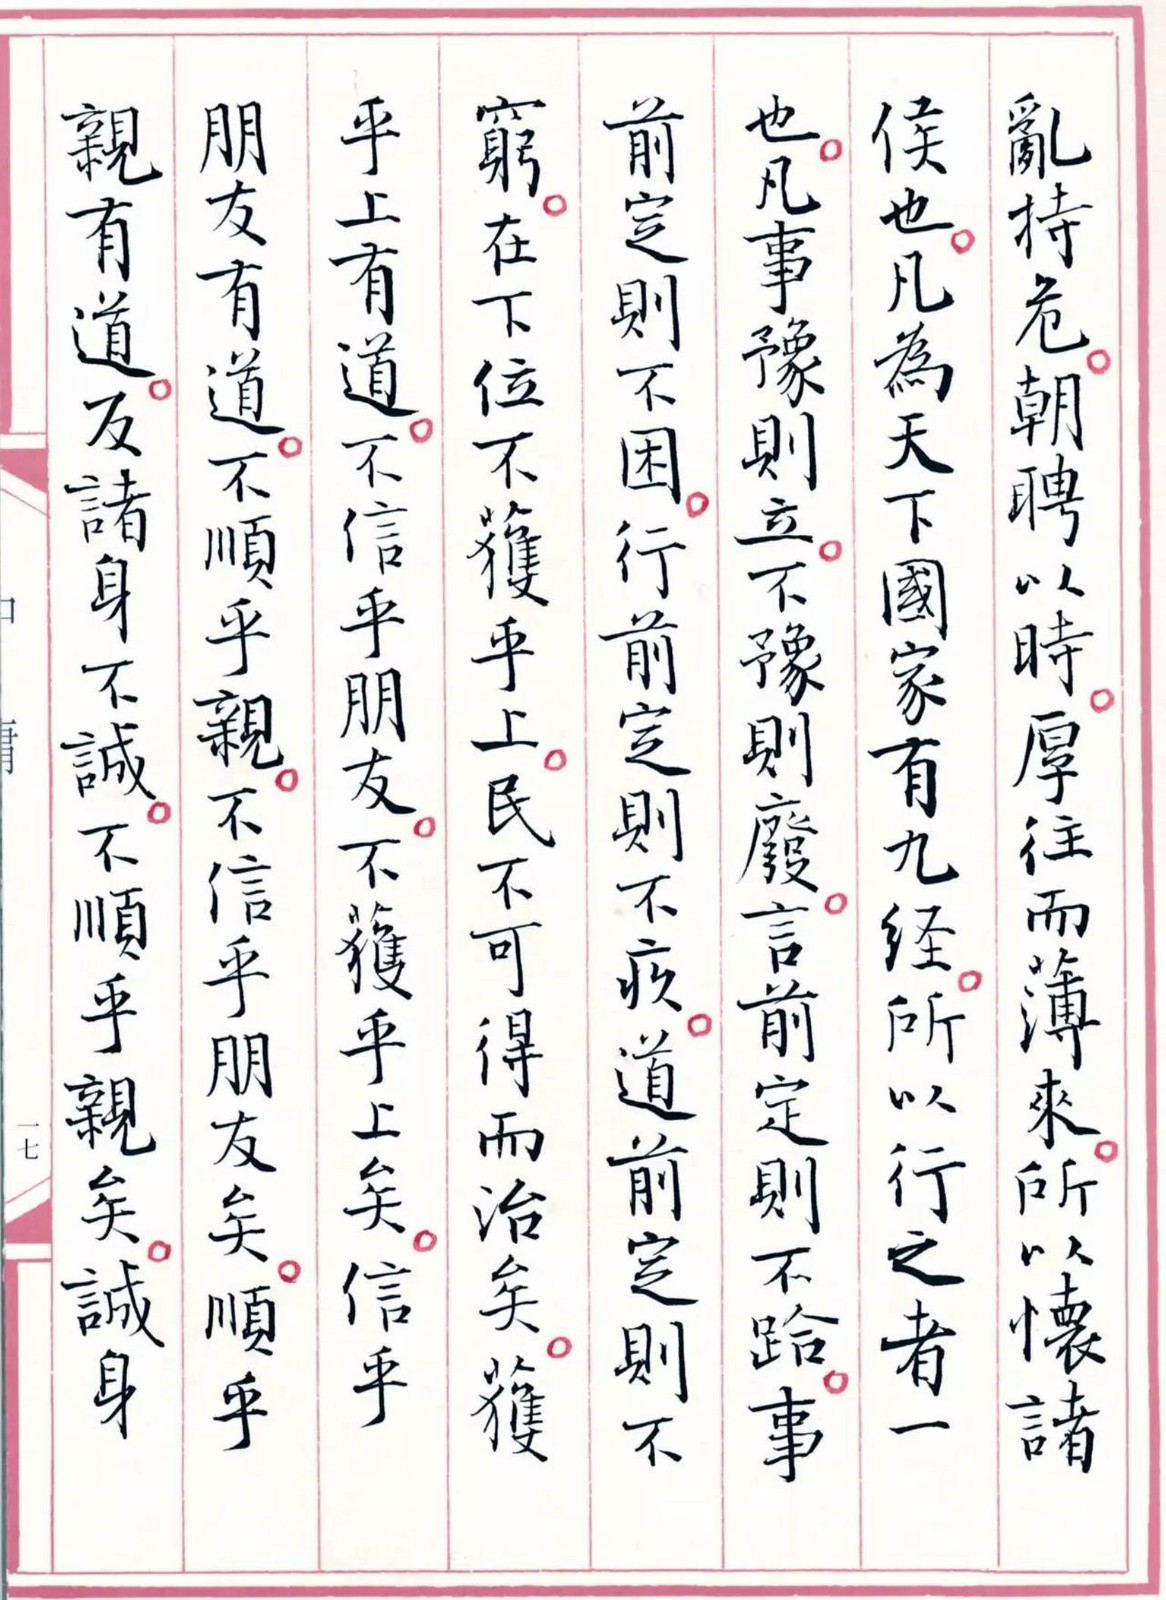 亂持危。朝聘以時。厚往而薄來。所以懷諸
侯也。凡為天下國家有九経。所以行之者一
也。凡事豫則立。不豫則廢。言前定則不跲。事
前定則不困。行前定則不疚。道前定則不
窮。在下位不獲乎上。民不可得而治矣。獲
乎上有道。不信乎朋友。不獲乎上矣。信乎
朋友有道。不順乎親。不信乎朋友矣。順乎
親有道。反諸身不誠。不順乎親矣。誠身
中庸
一七